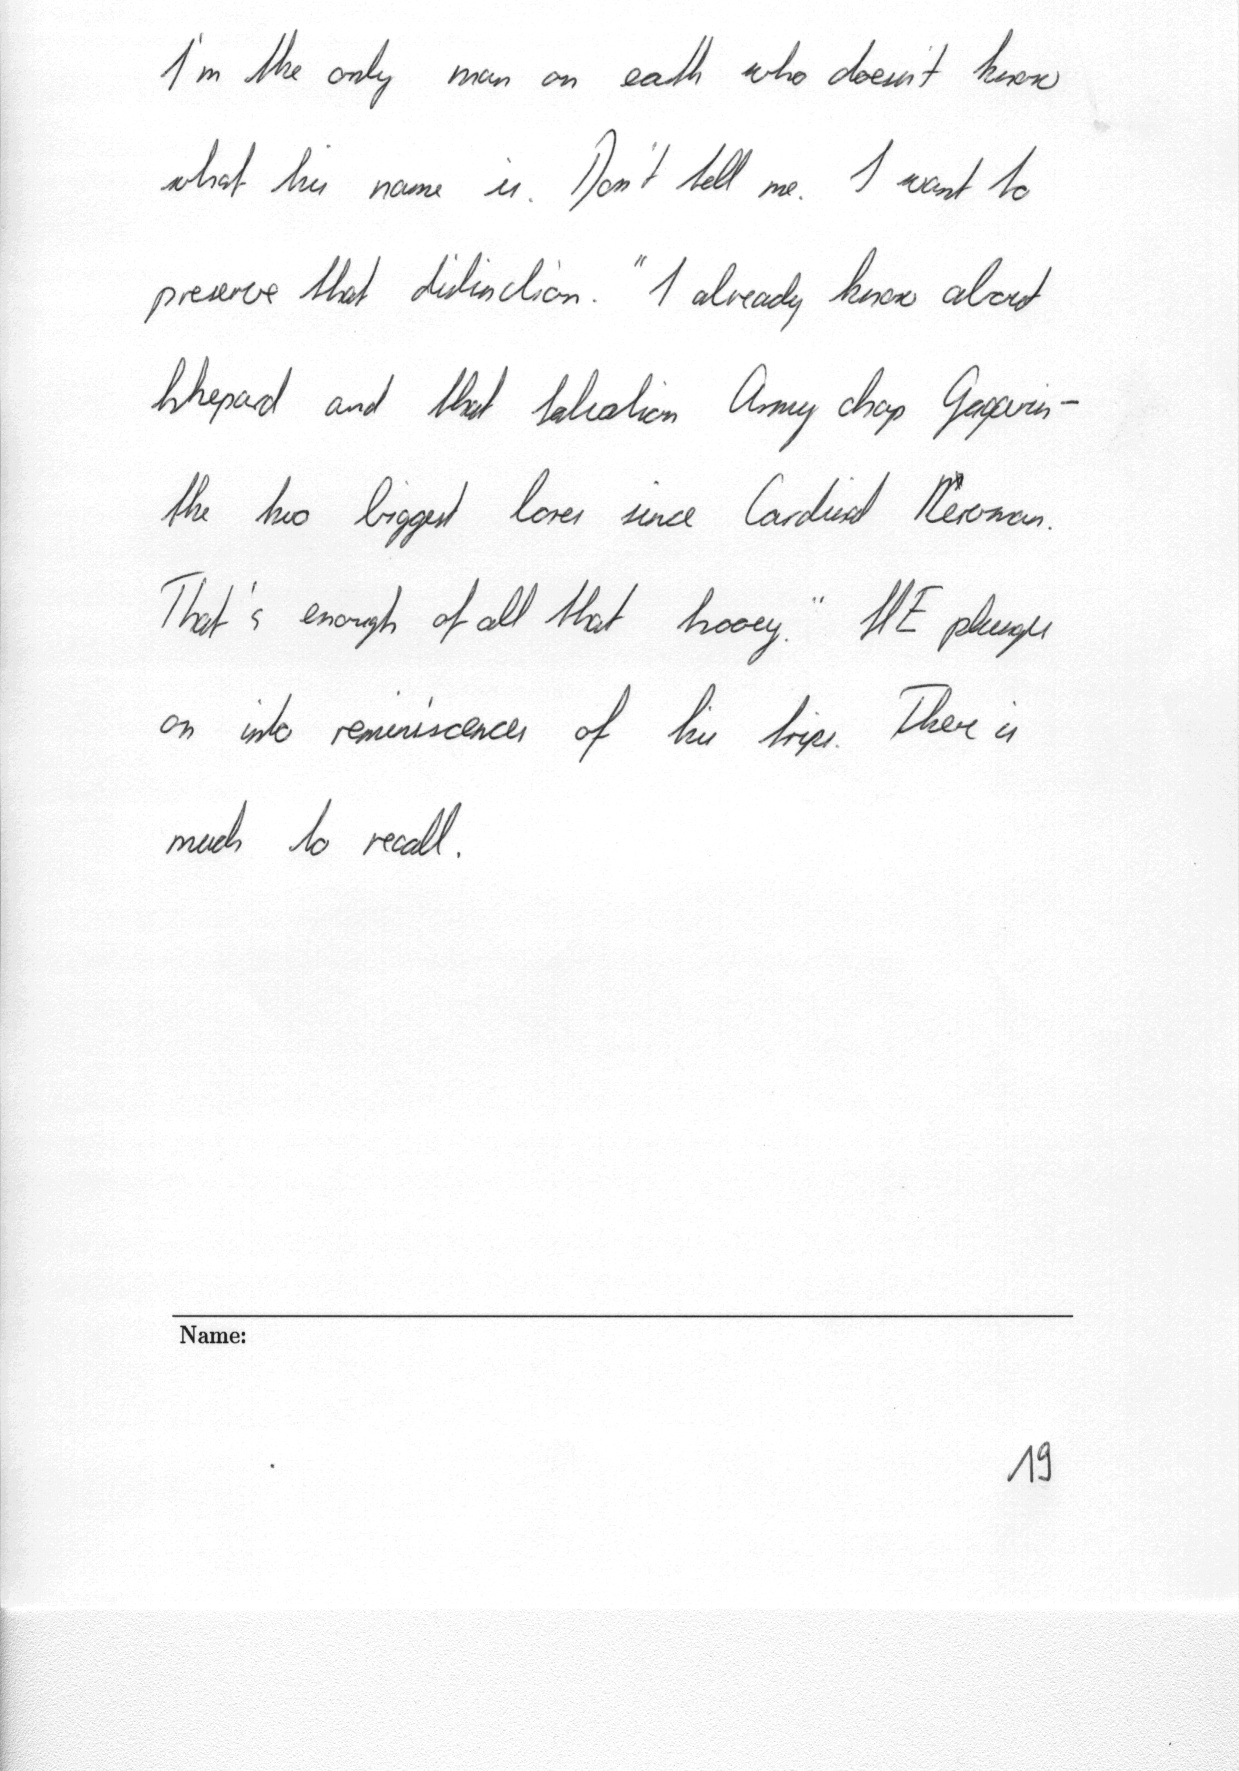 I'm the only man on eath who doesn't know
what his name is. Don't tell me. I want to
preserve that distinction. "I already know about
Shepard and that Salvation Army chap Gagarin-
the two biggest bores since Cardinal Newman.
That's enough of all that hooey." HE plunges
on into reminiscences of his trips. There is
much to recall.
Name:
19